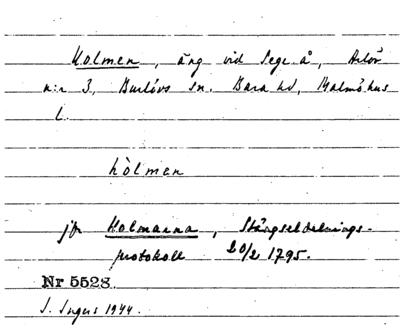 Holmen, äng vid Sege å, Arlöv
n:r 3, Burlövs sn. Bara hd, Malmöhus
l.
hòlmen
jfr Holmarna, Stängseldelnings-
protokoll 20/2 1795.
Nr 5528.
I. Ingers 1944.